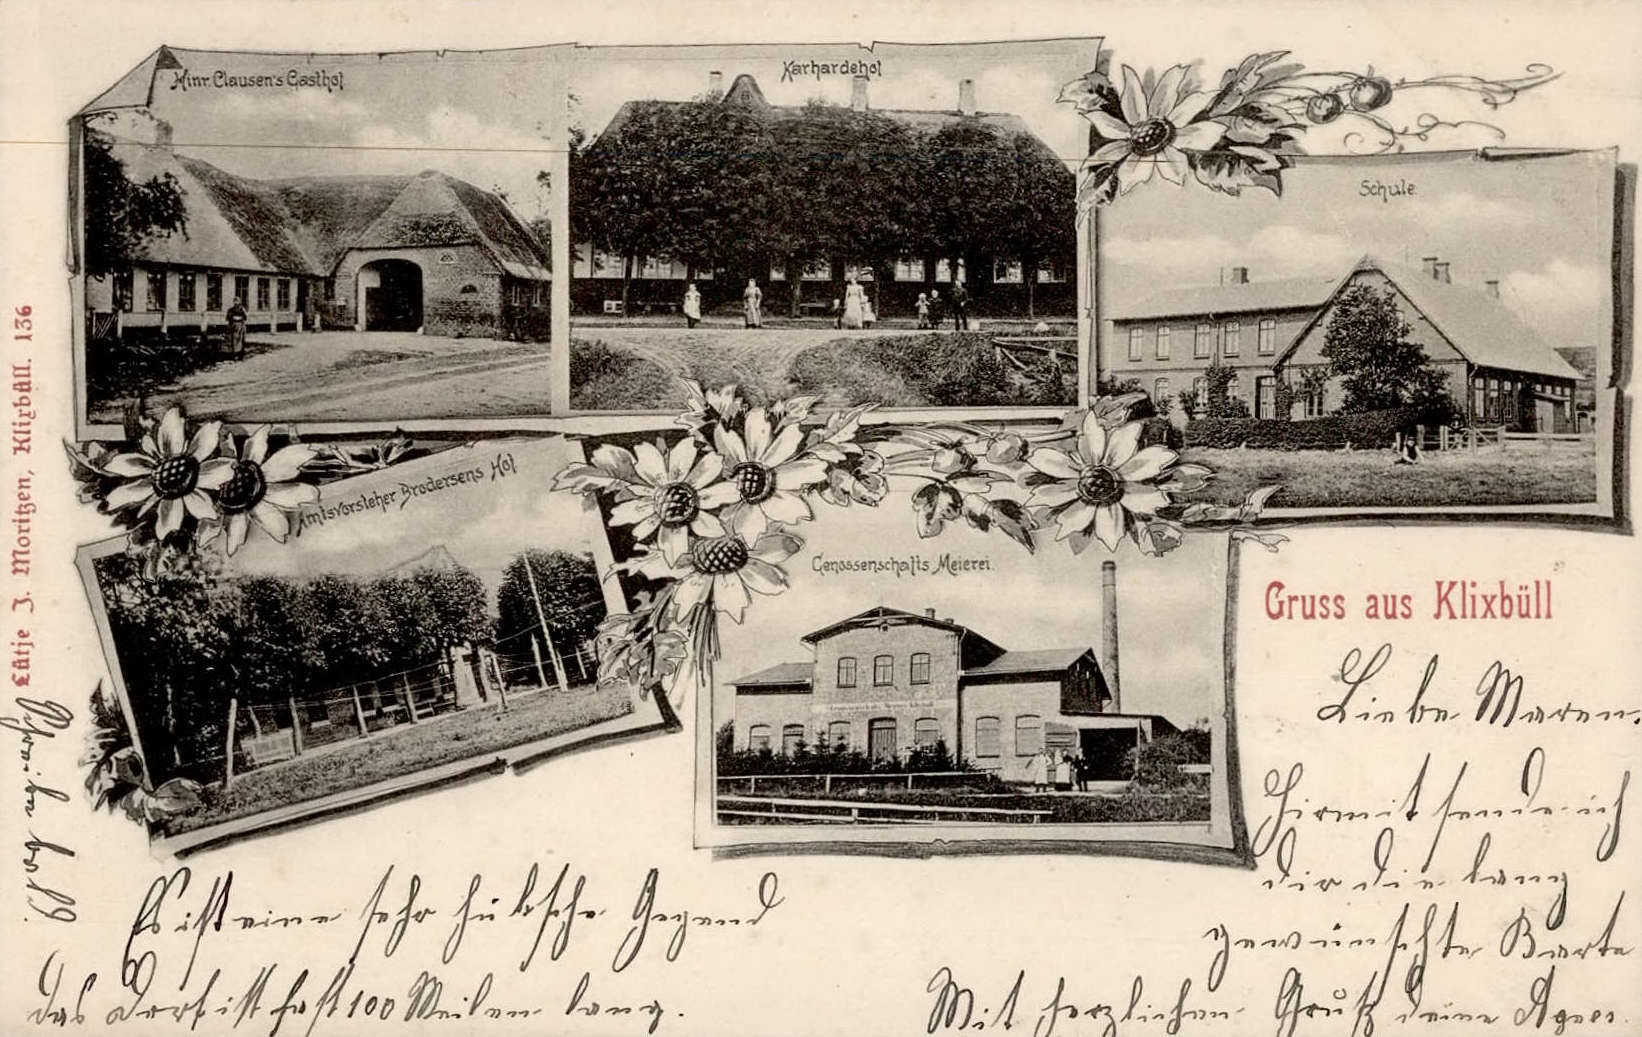 Hinr. Clausen's Gasthof
Karhardehof
Schule.
Amtsvorsteher Brodersens Hof
Genossenschafts Meierei.
Gruss aus Klixbüll
Lütje J. Moritzen, Klixbüll. 136
Liebe Maren.
Hiermit sende ich
dir die lang
gewünschte Karte
Mit herzlichem Gruß deine Agnes.
Es ist eine sehr hübsche Gegend
das Dorf ist fast 100 Meilen lang.
Schreibe bald